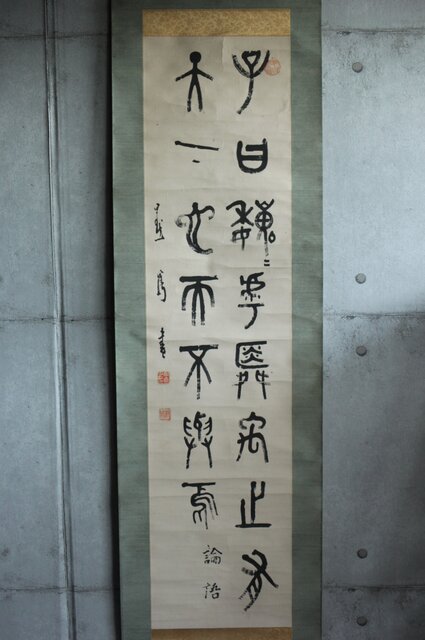 子曰巍〻乎舜禹之有
天下也而不與焉
論語
書